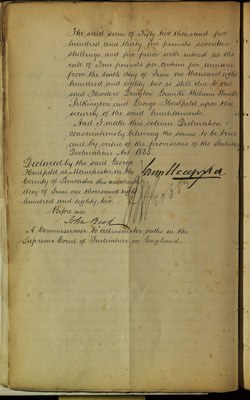 The said sum of Fifty two thousand five
hundred and thirty five pounds seventeen
shillings and five pence with interest at the
rate of Four pounds per centum per annum
from the tenth day of June one thousand eight
hundred and eighty two is still due to our
said Theodore William
Pilkington and George Hadfield upon the
security of the said Indentures.
And I make this solemn Declaration
conscientiously believing the same to be true
and by virtue of the provisions of the Statutory
Declarations Act 1835.
Declared by the said George
Hadfield at Manchester in the
County of Lancaster this nineteenth
day of June one thousand eight
hundred and eighty two.
Before me
John Bond
A Commissioner to administer oaths in the
Supreme Court of Judicature in England